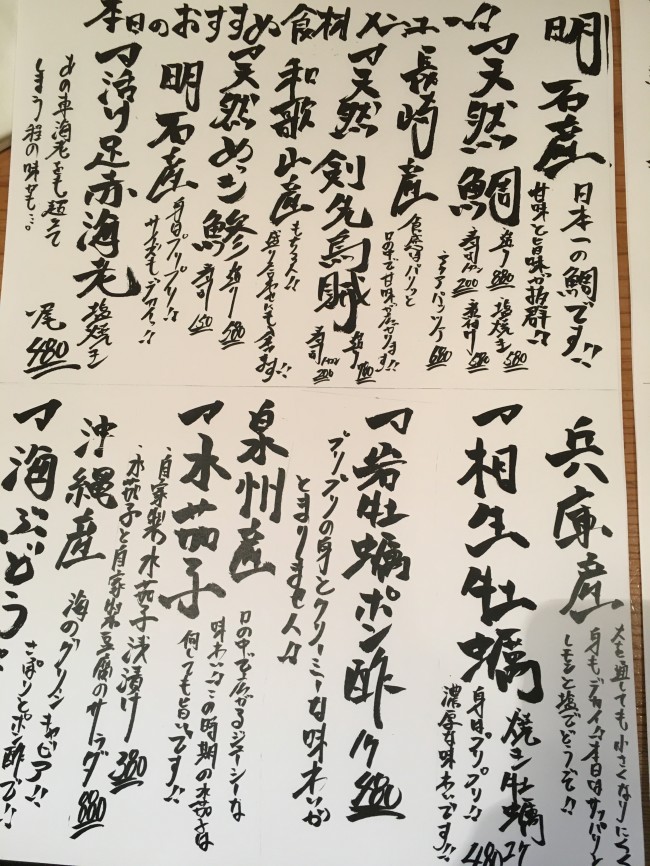 本日のおすすめ食材メニュー!!
明石産
日本一の鯛です!!
甘味と旨味が抜群!!
天然鯛
造り880 塩焼き580
寿司1カン200 煮付け580
アラアパッツァ680
長崎産
食感はパリッと
口の中で甘味が広がります!!
天然剣先烏賊
造り780
寿司1カン200
和歌山産
もちろん!!
盛り合わせにも入ります!!
天然めっき鯵
造り580
寿司150
明石産
身はプリプリ!!
サイズもデカイッ!!
活〆足赤海老塩焼き
あの車海老をも超えて
しまう程の味かも…。
一尾480
兵庫産
火を通しても小さくなりにくく
身もデカイ!!本日はサッパリと
レモンと塩でどうぞ!!
相生牡蠣 焼き牡蠣2ケ480
身はプリプリ!!
濃厚な味わいです!!
岩牡蠣ポン酢1ケ480
プリプリの身とクリーミーな味わいが
とまりません!!
泉州産
口の中で広がるジューシーな
味わい!!この時期の水茄子は
何しても旨いです!!
水茄子
・自家製水茄子浅漬け380
・水茄子と自家製豆腐のサラダ880
沖縄産
海のグリーンキャビア!!
さっぱりとポン酢で!!
海ぶどう